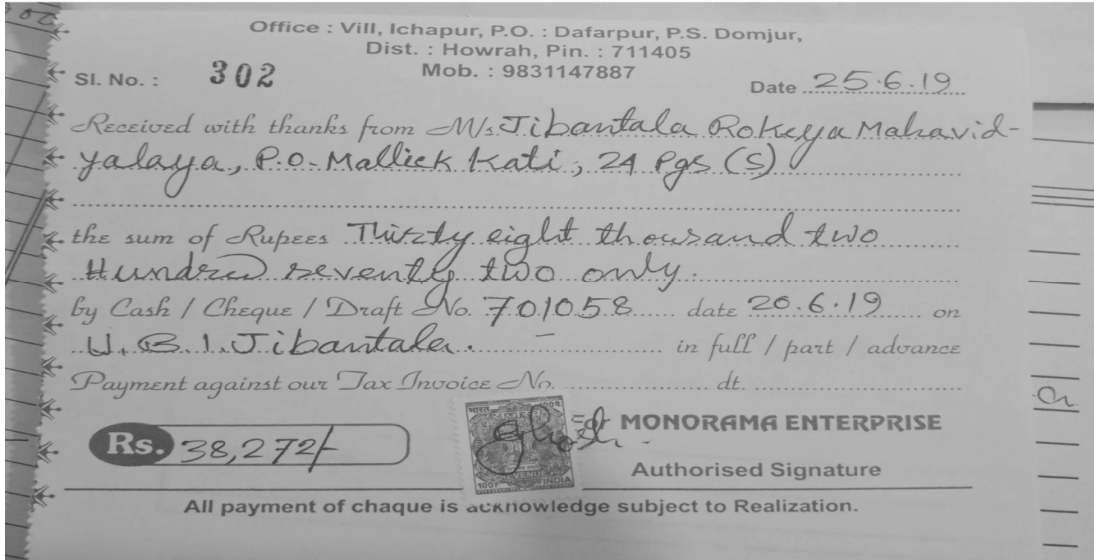 Office : Vill, Ichapur, P.O. : Dafarpur, P.S. Domjur,
Dist. : Howrah, Pin. : 711405
Mob. : 9831147887
Sl. No. : 302 Date 25.6.19
Received with thanks from M/s Jibantala Rokeya Mahavid-
yalaya, P.O- Mallick Kati, 24 Pgs (S)
the sum of Rupees Thirty eight thousand two
Hundred seventy two only.
by Cash / Cheque / Draft No. 701058 date 20.6.19 on
U.B.I. Jibantala. in full / part / advance
Payment against our Tax Invoice No. dt.
Rs. 38,272/- Ghosh For MONORAMA ENTERPRISE
भारत 100प
REVENUE
100P INDIA
Authorised Signature
All payment of chaque is acknowledge subject to Realization.